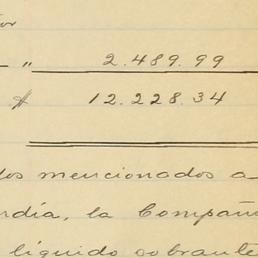 or
" 2.489.99
$ 12.228.34
dos mencionados a-
día, la Compañ
líquido sobrante